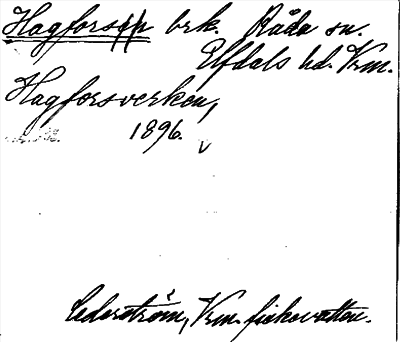 Hagfors brk. Råda sn.
Elfdals hd. Vrm.
Hagforsverken,
1896.
Cederström, Vrm. fiskevatten.